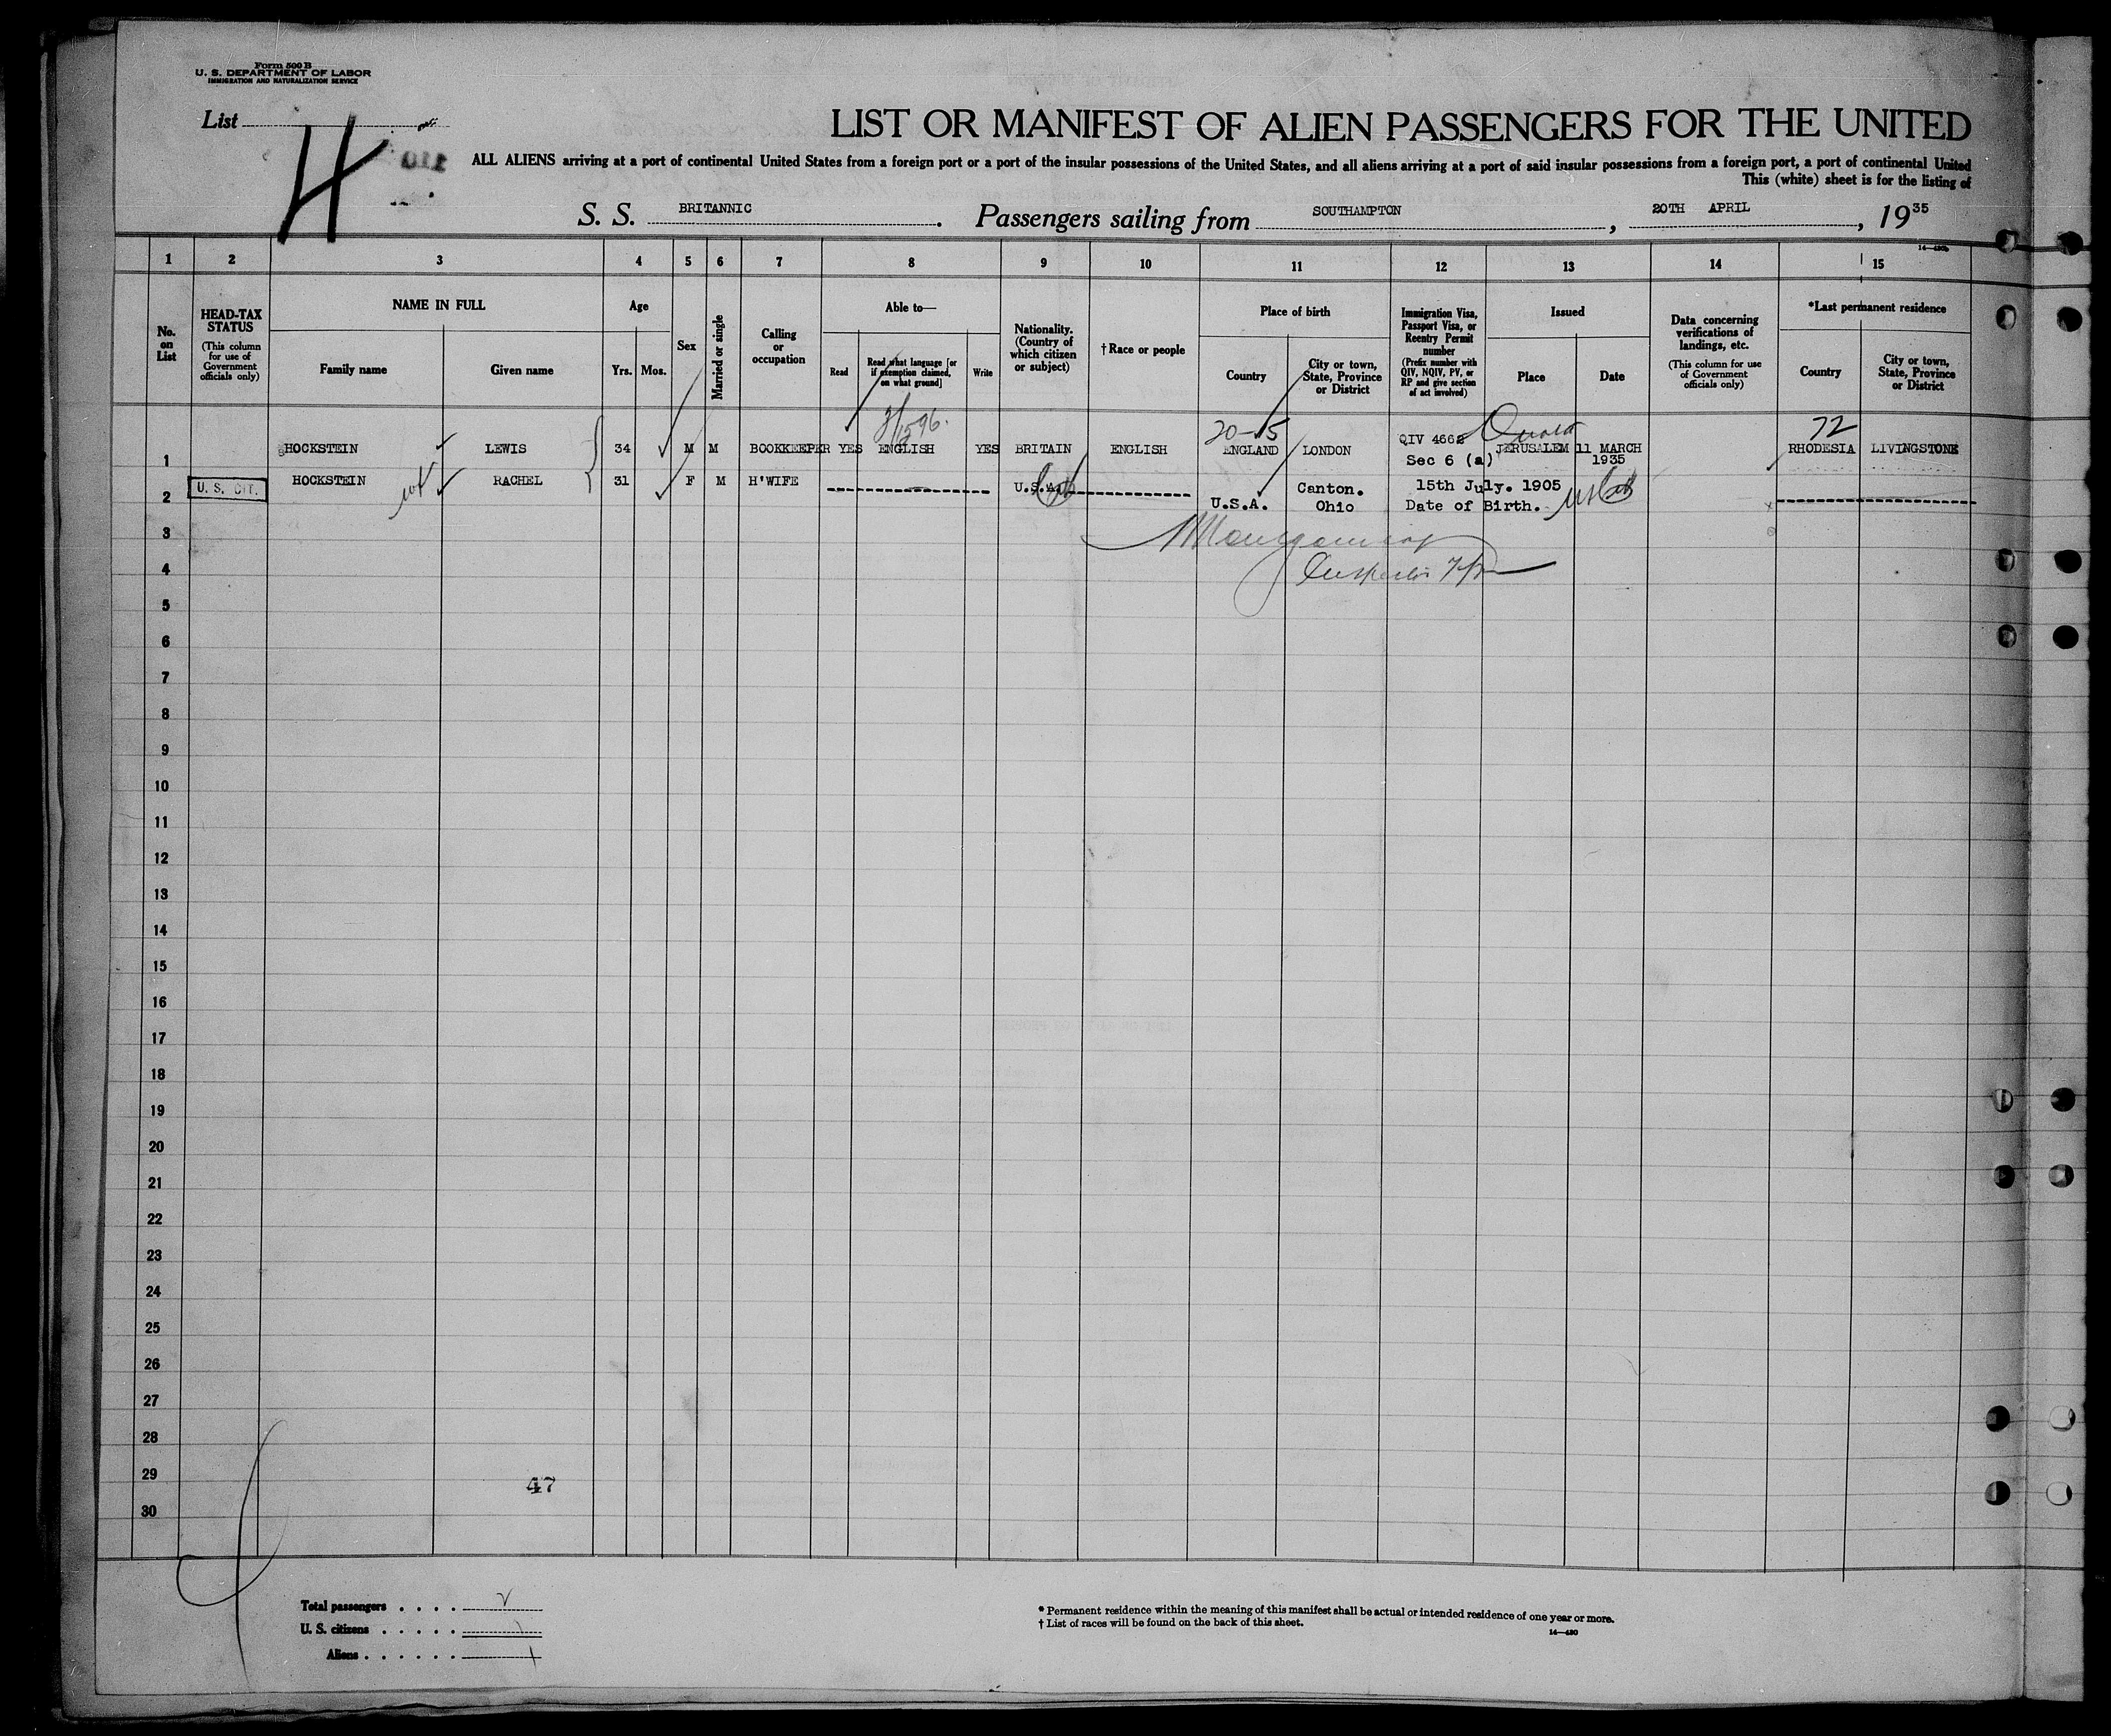 Form 500 B
U. S. DEPARTMENT OF LABOR
IMMIGRATION AND NATURALIZATION SERVICE
List
H
LIST OR MANIFEST OF ALIEN PASSENGERS FOR THE UNITED
ALL ALIENS arriving at a port of continental United States from a foreign port or a port of the insular possessions of the United States, and all aliens arriving at a port of said insular possessions from a foreign port, a port of continental United
This (white) sheet is for the listing of
S. S. BRITANNIC. Passengers sailing from SOUTHAMPTON, 20TH APRIL, 1935
1 2 3 4 5 6 7 8 9 10 11 12 13 14 15
No. on List
HEAD-TAX STATUS
(This column for use of Government officials only)
NAME IN FULL
Family name
Given name
Age
Yrs. Mos.
Sex
Married or single
Calling or occupation
Able to—
Read
Read what language [or if exemption claimed, on what ground]
Write
Nationality. (Country of which citizen or subject)
†Race or people
Place of birth
Country
City or town, State, Province or District
Immigration Visa, Passport Visa, or Reentry Permit number
(Prefix number with QIV, NQIV, PV, or RP and give section of act involved)
Issued
Place
Date
Data concerning verifications of landings, etc.
(This column for use of Government officials only)
*Last permanent residence
Country
City or town, State, Province or District
20-15
72
1 HOCKSTEIN LEWIS 34 M M BOOKKEEPER YES ENGLISH YES BRITAIN ENGLISH ENGLAND LONDON QIV 4662 JERUSALEM 11 MARCH RHODESIA LIVINGSTONE
Sec 6 (a) 1935
2 U. S. CIT. HOCKSTEIN wf RACHEL 31 F M H'WIFE U.S.A. U.S.A. Canton. Ohio 15th July. 1905
Date of Birth.
3
4
5
6
7
8
9
10
11
12
13
14
15
16
17
18
19
20
21
22
23
24
25
26
27
28
29
30
47
Total passengers . . . .
U. S. citizens . . . . .
Aliens . . . . . .
* Permanent residence within the meaning of this manifest shall be actual or intended residence of one year or more.
† List of races will be found on the back of this sheet.